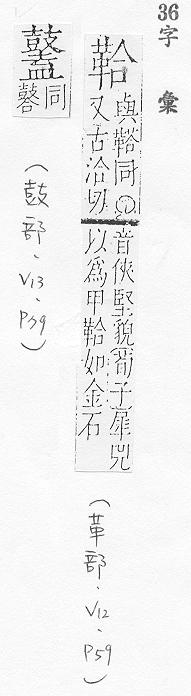 36 字彙
鞈
與鞳同
又古洽切
音俠堅貌荀子犀兕
以為甲鞈如金石
(革部.V12.P59)
同
(鼓部.V13.P79)